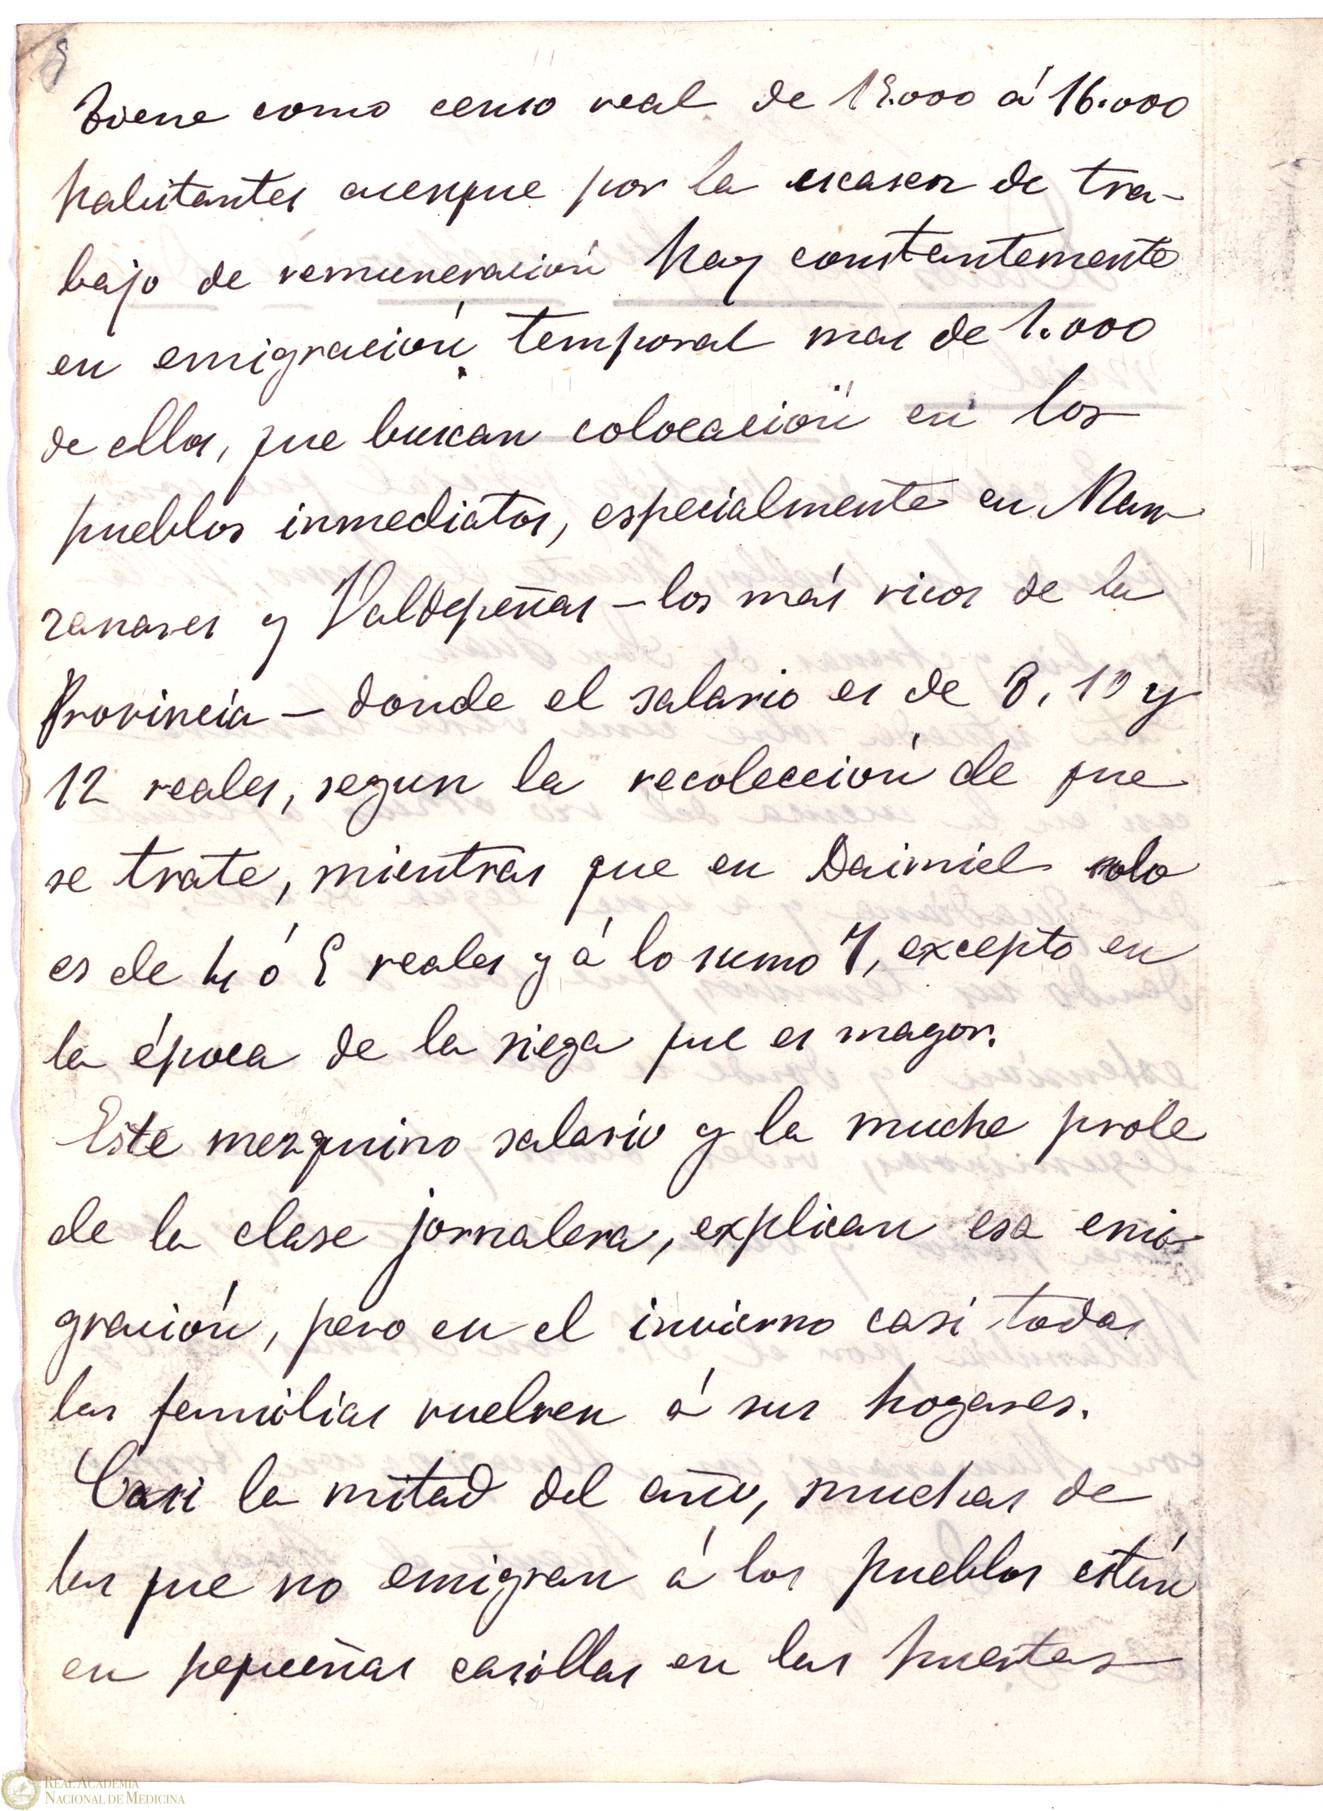 5
Tiene como censo real de 15.000 á 16.000
habitantes aunque por la escasez de tra-
bajo de remuneración hay constantemente
en emigración temporal mas de 1.000
de ellos, que buscan colocación en los
pueblos inmediatos, especialmente en Man
zanares y Valdepeñas – los más ricos de la
Provincia – donde el salario es de 8, 10 y
12 reales, segun la recolección de que
se trate, mientras que en Daimiel solo
es de 4 ó 5 reales y á lo sumo 7, excepto en
la época de la siega que es mayor.
Este mezquino salario y la mucha prole
de la clase jornalera, explican esa emi-
gración, pero en el invierno casi todas
las familias vuelven á sus hogares.
Casi la mitad del año, muchas de
las que no emigran á los pueblos están
en pequeñas casillas en las huertas
REAL ACADEMIA
NACIONAL DE MEDICINA